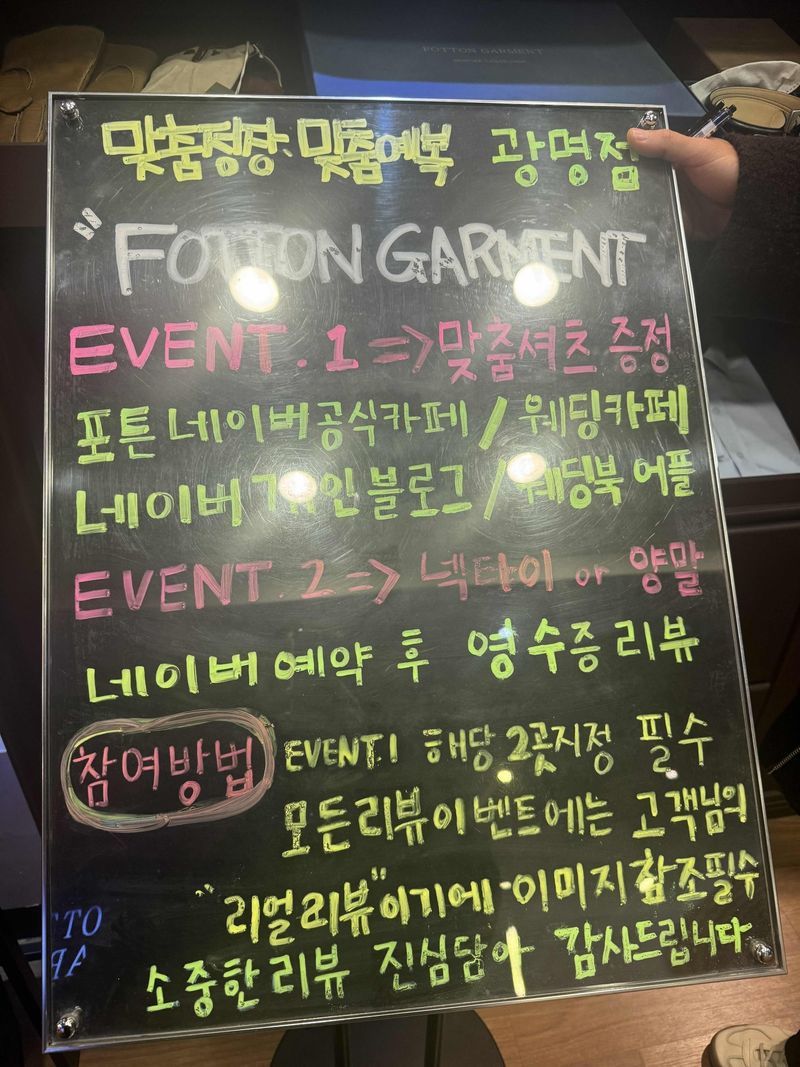 FOTTON GARMENT
맞춤정장·맞춤예복 광명점
"FOTTON GARMENT
EVENT.1=>맞춤셔츠 증정
포튼 네이버공식카페/웨딩카페
네이버 개인블로그/웨딩북 어플
EVENT.2=> 넥타이 or 양말
네이버 예약 후 영수증리뷰
참여방법
EVENT.1 해당 2곳지정 필수
모든리뷰이벤트에는 고객님의
"리얼리뷰"이기에 이미지 참조필수
소중한리뷰 진심담아 감사드립니다